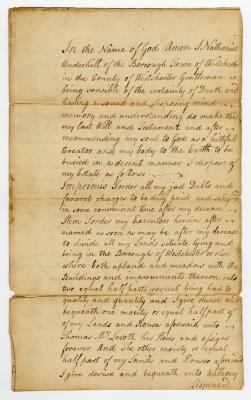 In the Name of God Amen I Nathaniel
Underhill of the Borough Town of Westchester
in the County of Westchester Gentleman
being sensible of the certainty of Death and
having a sound and disposing mind
memory and understanding do make this
my last Will and Testament and after
recommending my soul to God as a faithful
Creator and my body to the Earth to be
buried in a decent manner I dispose of
my Estate as follows
Imprimis I order all my just Debts and
funeral charges to be duly paid and satisfied
in some convenient time after my decease
Item I order my Executors herein after
named as soon as may be after my decease
to divide all my Lands situate lying and
being in the Borough of Westchester
where both upland and meadow with the
Buildings and improvements thereon into
two equal half parts respect being had to
quality and quantity and I give devise and
bequeath one moiety or equal half part of
of my Lands and Houses aforesaid unto
Thomas his Heirs and assigns
forever And the other moiety or equal
half part of my Lands and Houses aforesaid
I give devise and bequeath unto Anthony
Lispenard